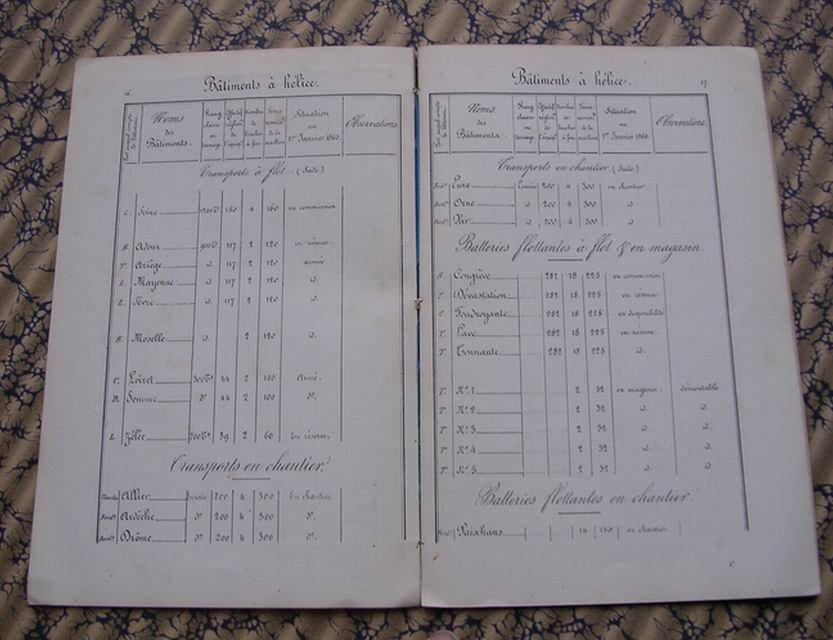 16.
Bâtiments à hélice.
Noms des Bâtiments.
Rang classe ou tonnage
Effectif réglem.re de l'équip.
Nombre de bouches à feu
Force nomin.le de la machine
Situation au 1er Janvier 1860.
Observations.
Transports à flot. (Suite.)
L. Isère 160 4 160 en commission
Adour 900tx 117 2 120 en réserve.
T. Ariège d. 117 2 120 armée
L. Mayenne d. 117 2 120 d.
L. Sèvre d. 117 2 120 d.
Moselle d. 2 120 d.
C. Loiret 300tx 44 2 100 Armé.
Somme d° 44 2 100 d°.
L. Zélée 200tx 39 2 60 En réserve.
Transports en chantier
Allier 200 4 300 En chantier.
Ardèche d° 200 4 300 d°.
Drôme d° 200 4 300 d°.
17.
Bâtiments à hélice.
Noms des Bâtiments.
Rang classe ou tonnage
Effectif réglem.re de l'équip.
Nombre de bouches à feu
Force nomin.le de la machine
Situation au 1er Janvier 1860.
Observations.
Transports en chantier. (Suite.)
Eure 200 4 300 en chantier.
Orne d 200 4 300 d.
Var d 200 4 300 d.
Batteries flottantes à flot & en magasin.
Congrève 282 18 225 en commission
T. Dévastation 282 18 225 en réserve.
C. Foudroyante 282 18 225 en disponibilité
T. Lave 282 18 225 en réserve.
T. Tonnante 282 18 225 d.
T. N°. 1 2 32 en magasin. démontable
T. N°. 2 2 32 d. d.
T. N°. 3 2 32 d. d.
T. N°. 4 2 32 d. d.
T. N°. 5 2 32 d. d.
Batteries flottantes en chantier.
Paixhans 14 150 en chantier.